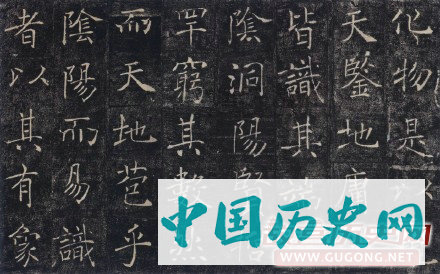 化物是以
天鑒地庸
皆識其端
陰洞陽賢
罕窮其數然
而天地苞乎
陰陽而易識
者以其有象
中国历史网
WWW.GUGONG.NET